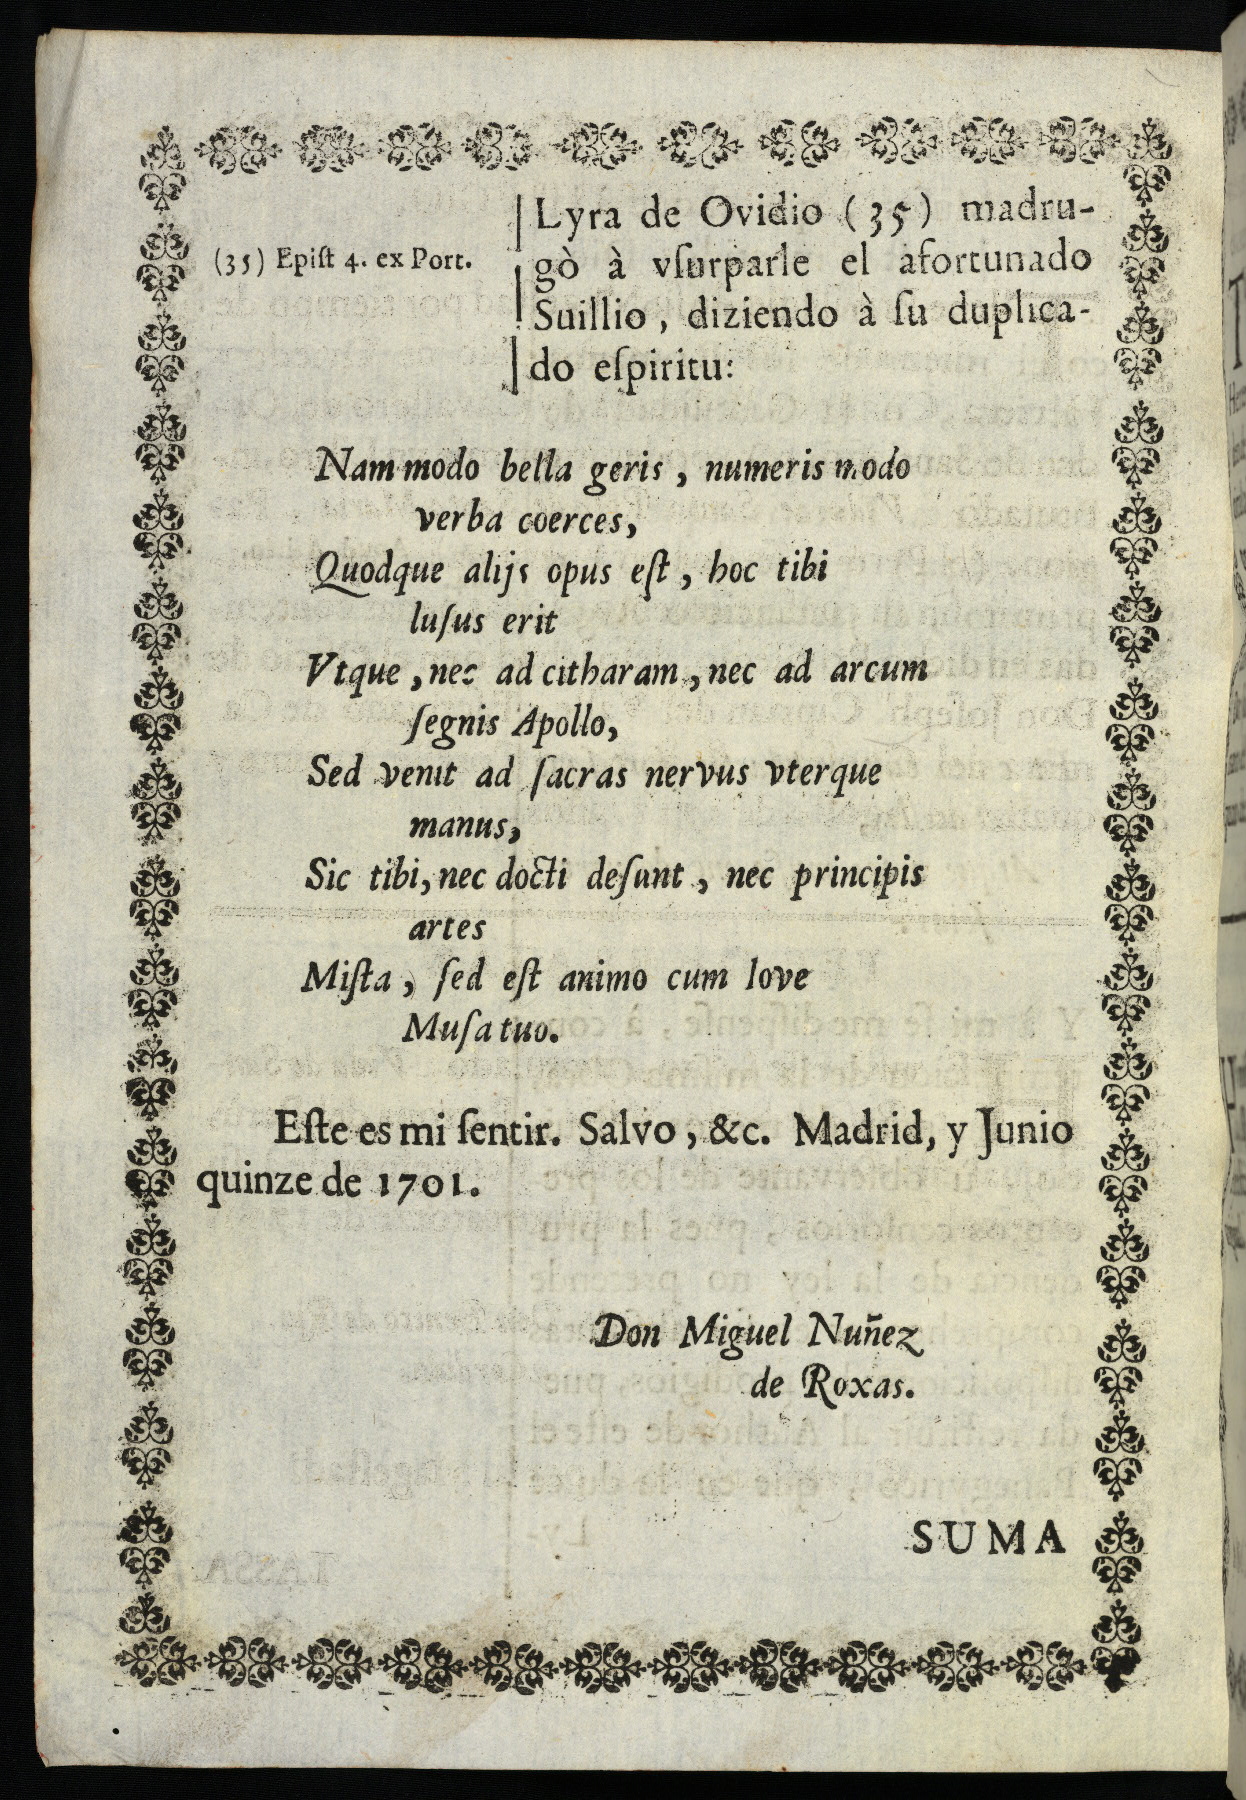 Lyra de Ovidio (35) madru-
(35) Epiſt 4. ex Port.
gò à vſurparle el afortunado
Suillio, diziendo à ſu duplica-
do eſpiritu:
Nam modo bella geris, numeris modo
verba coerces,
Quodque alijs opus eſt, hoc tibi
luſus erit
Vtque, nec ad citharam, nec ad arcum
ſegnis Apollo,
Sed venit ad ſacras nervus vterque
manus,
Sic tibi, nec docti deſunt, nec principis
artes
Miſta, ſed eſt animo cum Iove
Muſa tuo.
Eſte es mi ſentir. Salvo, &c. Madrid, y Junio
quinze de 1701.
Don Miguel Nuñez
de Roxas.
SUMA